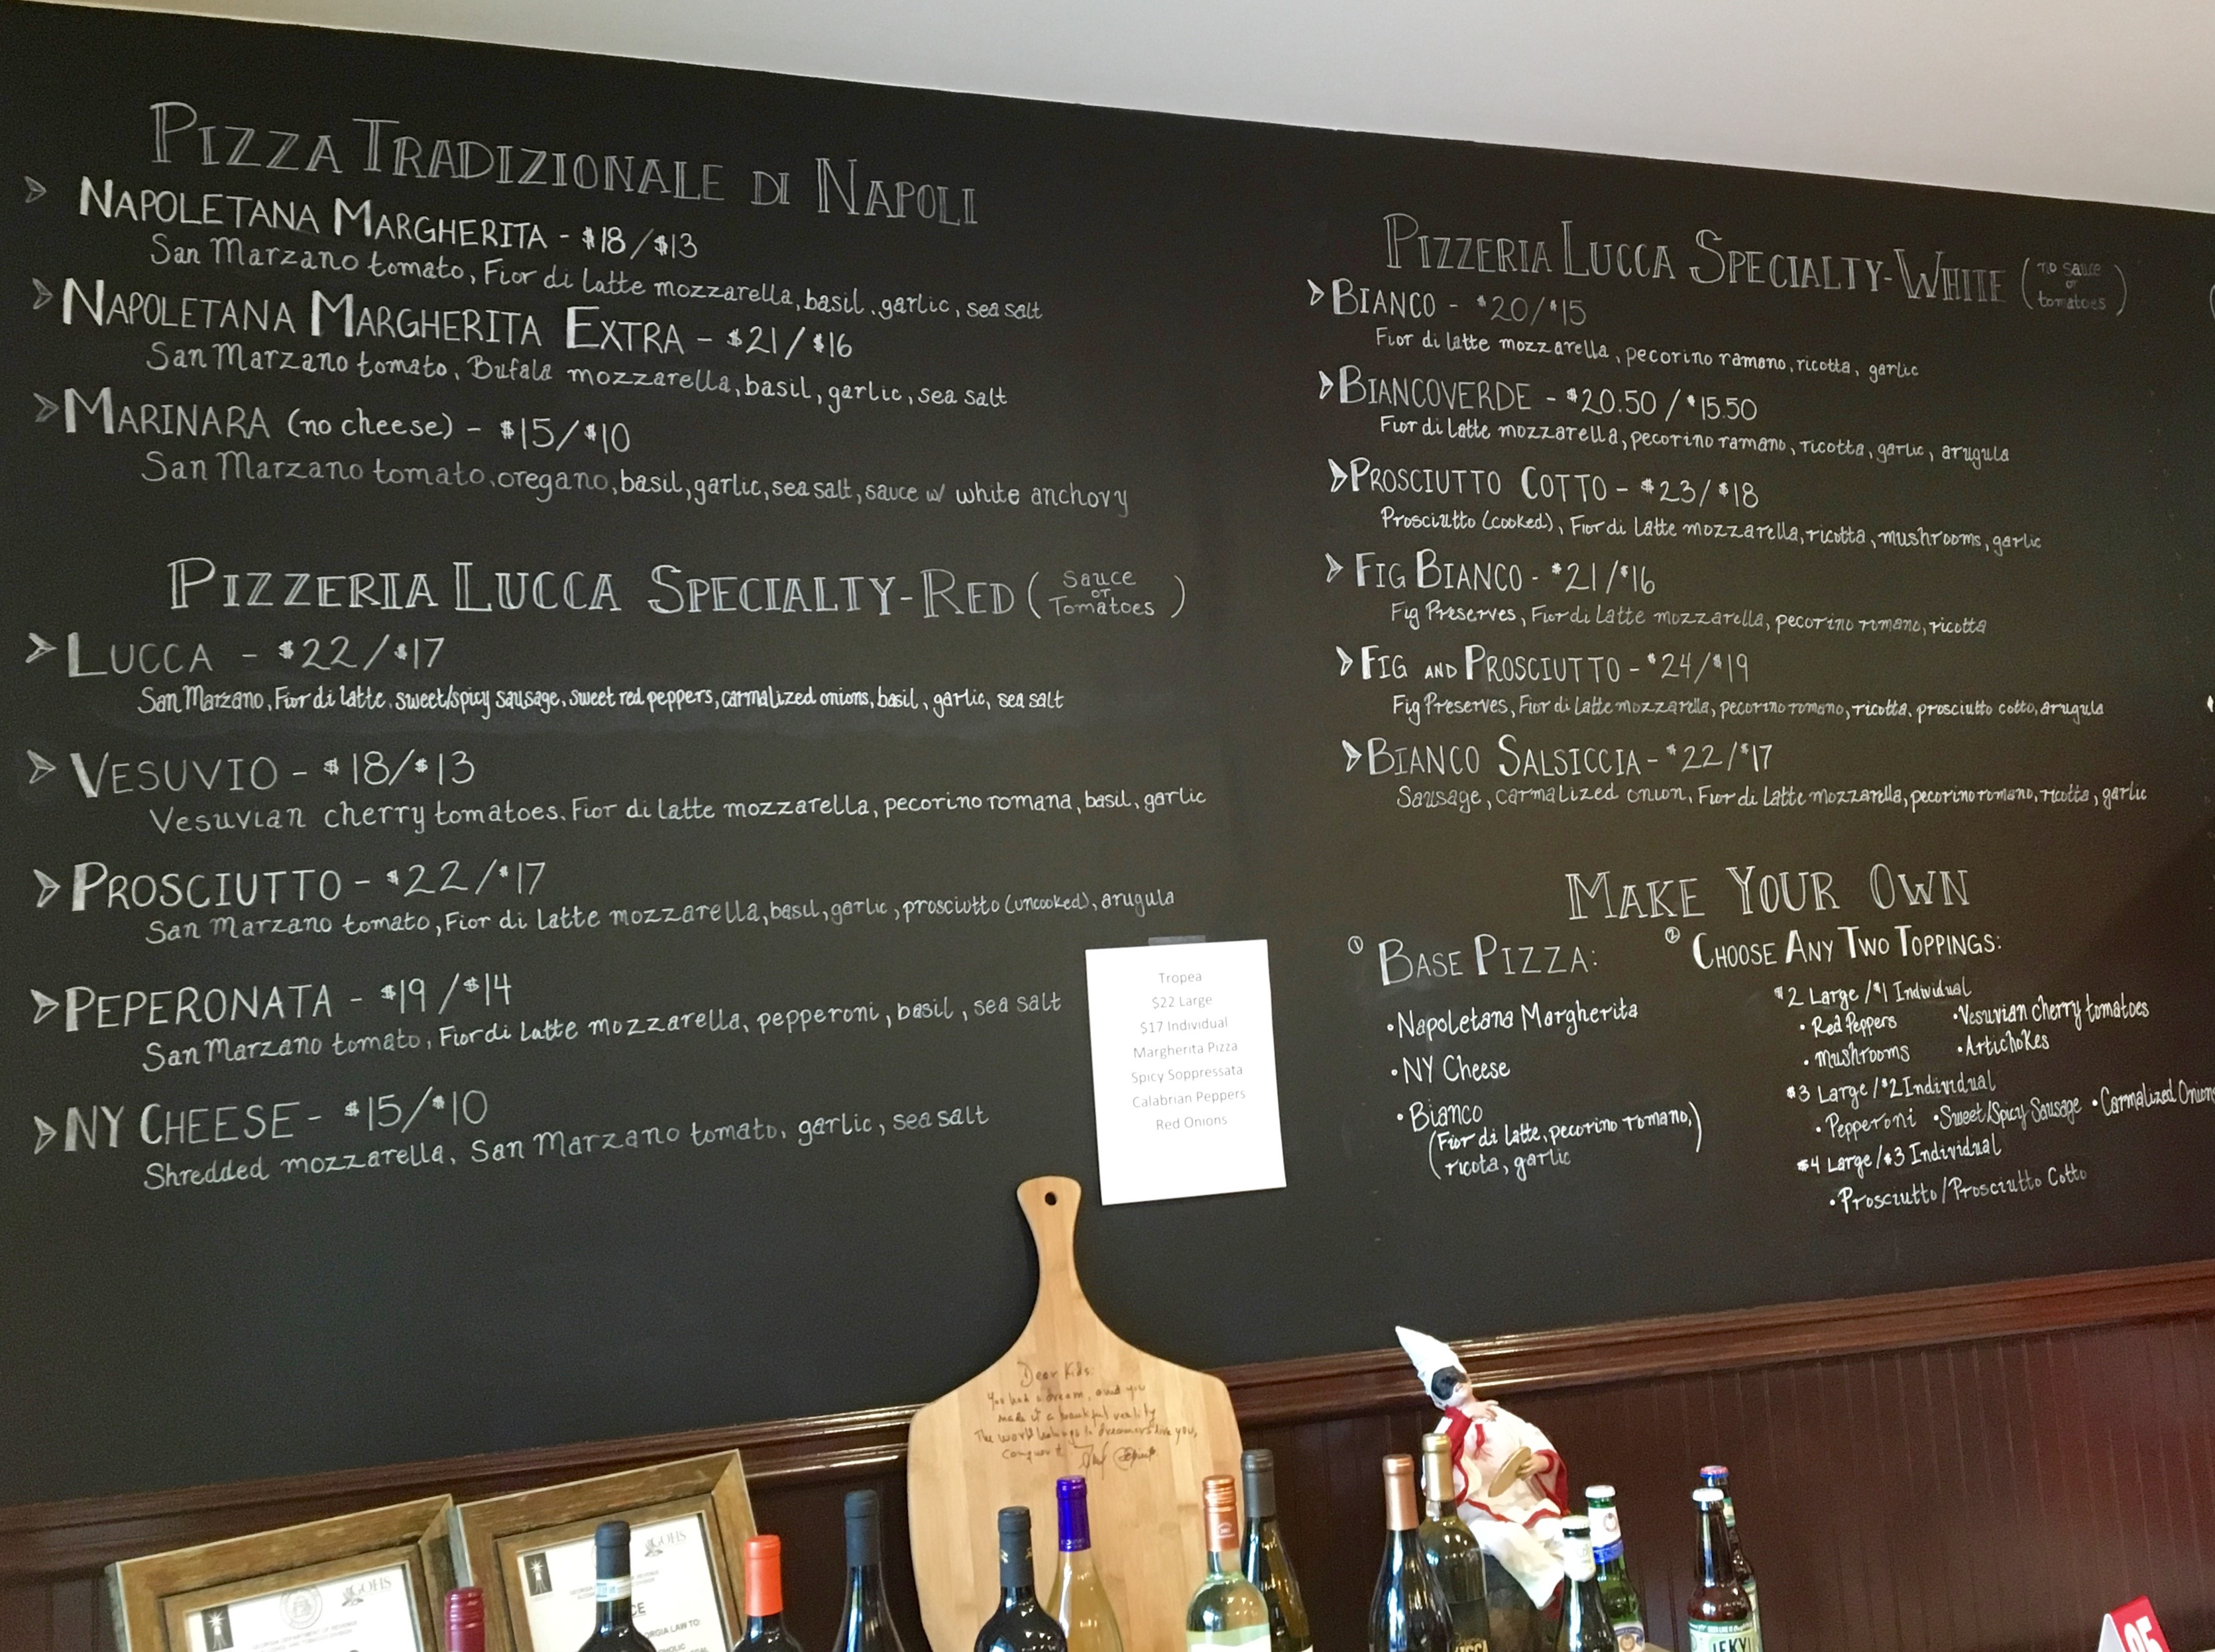 PIZZA TRADIZIONALE DI NAPOLI
NAPOLETANA MARGHERITA - $18/$13
San Marzano tomato, Fior di Latte mozzarella, basil, garlic, sea salt
NAPOLETANA MARGHERITA EXTRA - $21/$16
San Marzano tomato, Bufala mozzarella, basil, garlic, sea salt
MARINARA (no cheese) - $15/$10
San Marzano tomato, oregano, basil, garlic, sea salt, sauce w/ white anchovy
PIZZERIA LUCCA SPECIALTY-RED (Sauce or Tomatoes)
LUCCA - $22/$17
San Marzano, Fior di latte, sweet/spicy sausage, sweet red peppers, carmalized onions, basil, garlic, sea salt
VESUVIO - $18/$13
Vesuvian cherry tomatoes, Fior di latte mozzarella, pecorino romana, basil, garlic
PROSCIUTTO - $22/$17
San Marzano tomato, Fior di Latte mozzarella, basil, garlic, prosciutto (uncooked), arugula
PEPERONATA - $19/$14
San Marzano tomato, Fior di Latte mozzarella, pepperoni, basil, sea salt
NY CHEESE - $15/$10
Shredded mozzarella, San Marzano tomato, garlic, sea salt
Tropea
$22 Large
$17 Individual
Margherita Pizza
Spicy Soppressata
Calabrian Peppers
Red Onions
PIZZERIA LUCCA SPECIALTY-WHITE (no sauce or tomatoes)
BIANCO - $20/$15
Fior di latte mozzarella, pecorino ramano, ricotta, garlic
BIANCOVERDE - $20.50/$15.50
Fior di Latte mozzarella, pecorino ramano, ricotta, garlic, arugula
PROSCIUTTO COTTO - $23/$18
Prosciutto (cooked), Fior di Latte mozzarella, ricotta, mushrooms, garlic
FIG BIANCO - $21/$16
Fig Preserves, Fior di Latte mozzarella, pecorino romano, ricotta
FIG AND PROSCIUTTO - $24/$19
Fig Preserves, Fior di Latte mozzarella, pecorino romano, ricotta, prosciutto cotto, arugula
BIANCO SALSICCIA - $22/$17
Sausage, carmalized onion, Fior di Latte mozzarella, pecorino romano, ricotta, garlic
MAKE YOUR OWN
① BASE PIZZA:
• Napoletana Margherita
• NY Cheese
• Bianco
(Fior di latte, pecorino romano,
ricota, garlic)
② CHOOSE ANY TWO TOPPINGS:
$2 Large/$1 Individual
• Red Peppers • Vesuvian cherry tomatoes
• Mushrooms • Artichokes
$3 Large/$2 Individual
• Pepperoni • Sweet/Spicy Sausage • Carmalized Onions
$4 Large/$3 Individual
• Prosciutto/Prosciutto Cotto
Dear Kids:
You had a dream, and you
made it a beautiful reality
The world belongs to dreamers like you,
conquer it
GOHS
GOHS
GEORGIA DEPARTMENT OF REVENUE
CE
ORGIA LAW TO: